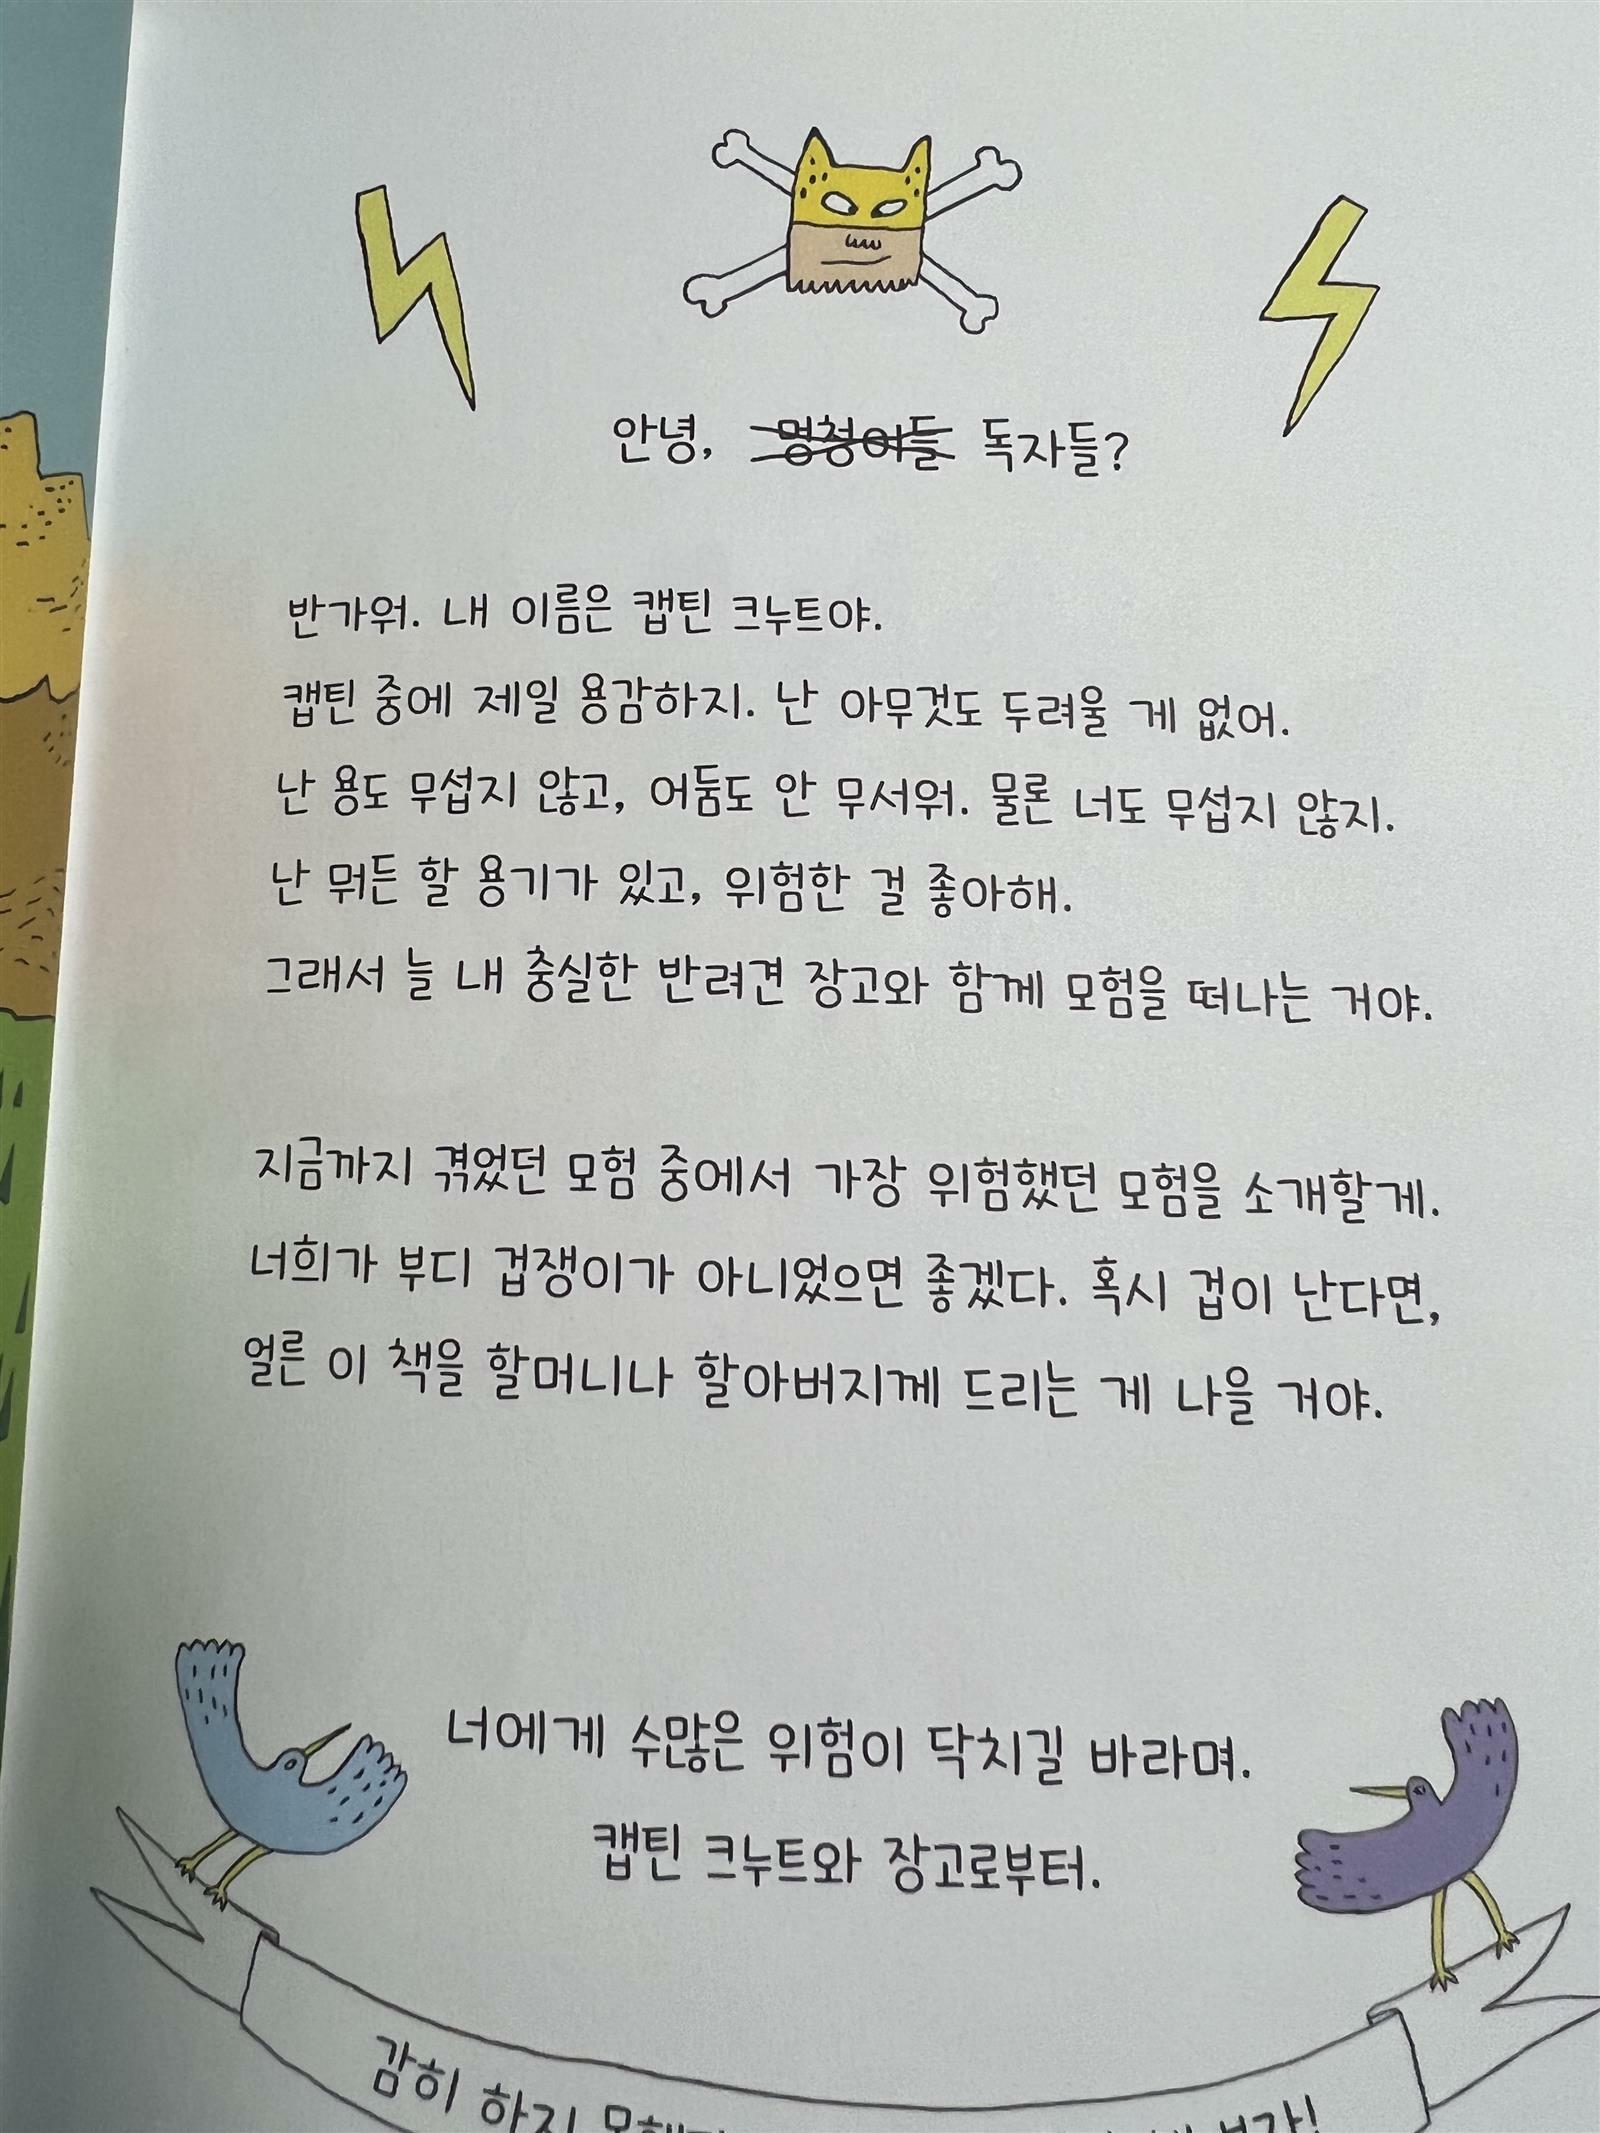 안녕, 멍청이들 독자들?
반가워. 내 이름은 캡틴 크누트야.
캡틴 중에 제일 용감하지. 난 아무것도 두려울 게 없어.
난 용도 무섭지 않고, 어둠도 안 무서워. 물론 너도 무섭지 않지.
난 뭐든 할 용기가 있고, 위험한 걸 좋아해.
그래서 늘 내 충실한 반려견 장고와 함께 모험을 떠나는 거야.
지금까지 겪었던 모험 중에서 가장 위험했던 모험을 소개할게.
너희가 부디 겁쟁이가 아니었으면 좋겠다. 혹시 겁이 난다면,
얼른 이 책을 할머니나 할아버지께 드리는 게 나을 거야.
너에게 수많은 위험이 닥치길 바라며.
캡틴 크누트와 장고로부터.
감히 하지